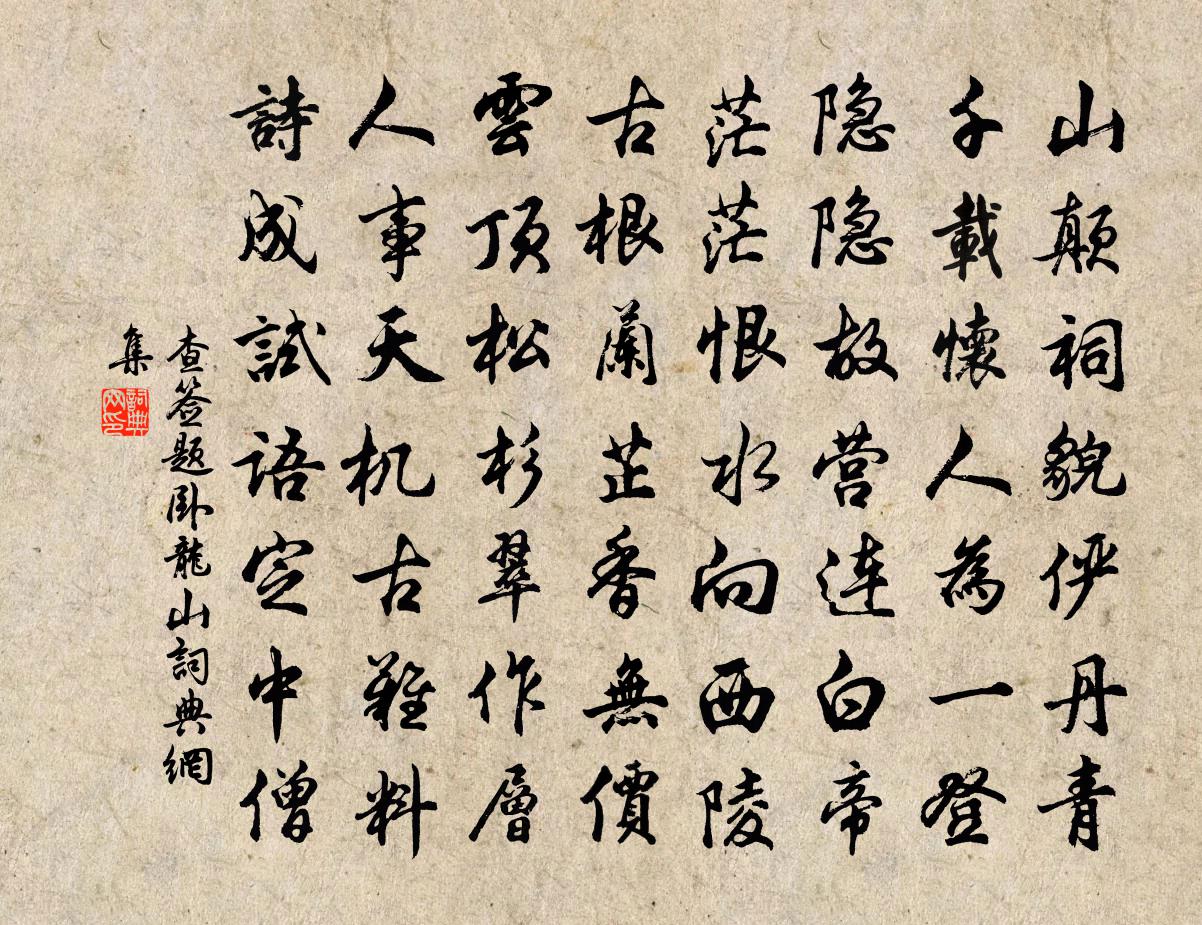 山颠祠貌俨丹青
千載懷人為一登
隐隐故营連白帝
茫茫恨水向西陵
古根蘭芷香無價
雲頂松杉翠作層
人事天机古難料
詩成試語定中僧
查签题卧龍山詞典網
集
詞典
网印